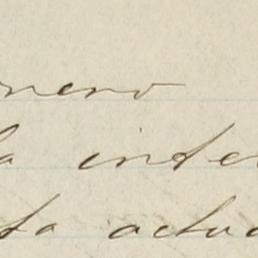 nero
la inter
ta actua